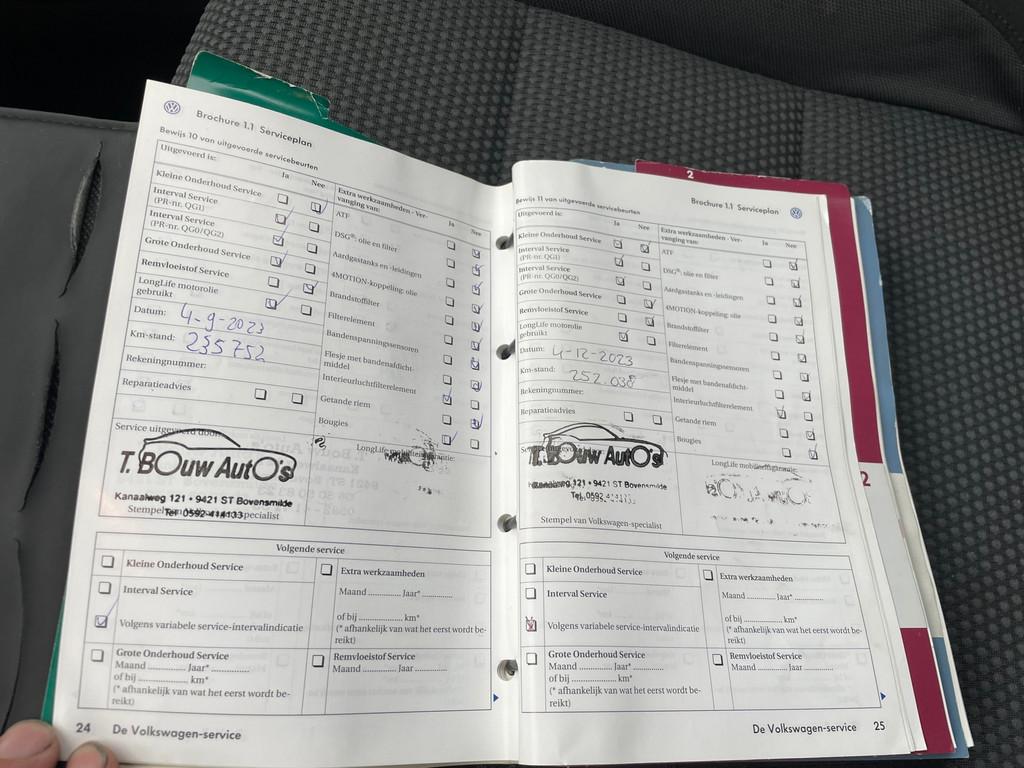 Brochure 1.1 Serviceplan
Bewijs 10 van uitgevoerde servicebeurten
Uitgevoerd is:
Ja
Nee
Kleine Onderhoud Service
Interval Service
(PR-nr. QG1)
Interval Service
(PR-nr. QG0/QG2)
Grote Onderhoud Service
Remvloeistof Service
LongLife motorolie
gebruikt
Datum: 4-9-2023
Km-stand: 235752
Rekeningnummer:
Reparatieadvies
Extra werkzaamheden - Ver-
vanging van:
Ja
Nee
ATF
DSG®: olie en filter
Aardgastanks en -leidingen
4MOTION-koppeling: olie
Brandstoffilter
Filterelement
Bandenspanningssensoren
Flesje met bandenafdicht-
middel
Interieurluchtfilterelement
Getande riem
Bougies
Service uitgevoerd door:
T. BOuw AutO's
Kanaalweg 121 • 9421 ST Bovensmilde
Tel. 0592-414133
Stempel van Volkswagen-specialist
LongLife mobiliteitsgarantie:
Volgende service
Kleine Onderhoud Service
Interval Service
Volgens variabele service-intervalindicatie
Grote Onderhoud Service
Maand ............ Jaar* ............
of bij ............ km*
(* afhankelijk van wat het eerst wordt be-
reikt)
Extra werkzaamheden
Maand ............ Jaar* ............
of bij ............ km*
(* afhankelijk van wat het eerst wordt be-
reikt)
Remvloeistof Service
Maand ............ Jaar ............
24 De Volkswagen-service
2
Brochure 1.1 Serviceplan
Bewijs 11 van uitgevoerde servicebeurten
Uitgevoerd is:
Ja
Nee
Kleine Onderhoud Service
Interval Service
(PR-nr. QG1)
Interval Service
(PR-nr. QG0/QG2)
Grote Onderhoud Service
Remvloeistof Service
LongLife motorolie
gebruikt
Datum: 4-12-2023
Km-stand: 252.038
Rekeningnummer:
Reparatieadvies
Extra werkzaamheden - Ver-
vanging van:
Ja
Nee
ATF
DSG®: olie en filter
Aardgastanks en -leidingen
4MOTION-koppeling: olie
Brandstoffilter
Filterelement
Bandenspanningssensoren
Flesje met bandenafdicht-
middel
Interieurluchtfilterelement
Getande riem
Bougies
T. BOuw AutO's
Kanaalweg 121 • 9421 ST Bovensmilde
Tel. 0592
Stempel van Volkswagen-specialist
LongLife mobiliteitsgarantie:
2
Volgende service
Kleine Onderhoud Service
Interval Service
Volgens variabele service-intervalindicatie
Grote Onderhoud Service
Maand ............ Jaar* ............
of bij ............ km*
(* afhankelijk van wat het eerst wordt be-
reikt)
Extra werkzaamheden
Maand ............ Jaar* ............
of bij ............ km*
(* afhankelijk van wat het eerst wordt be-
reikt)
Remvloeistof Service
Maand ............ Jaar ............
De Volkswagen-service 25